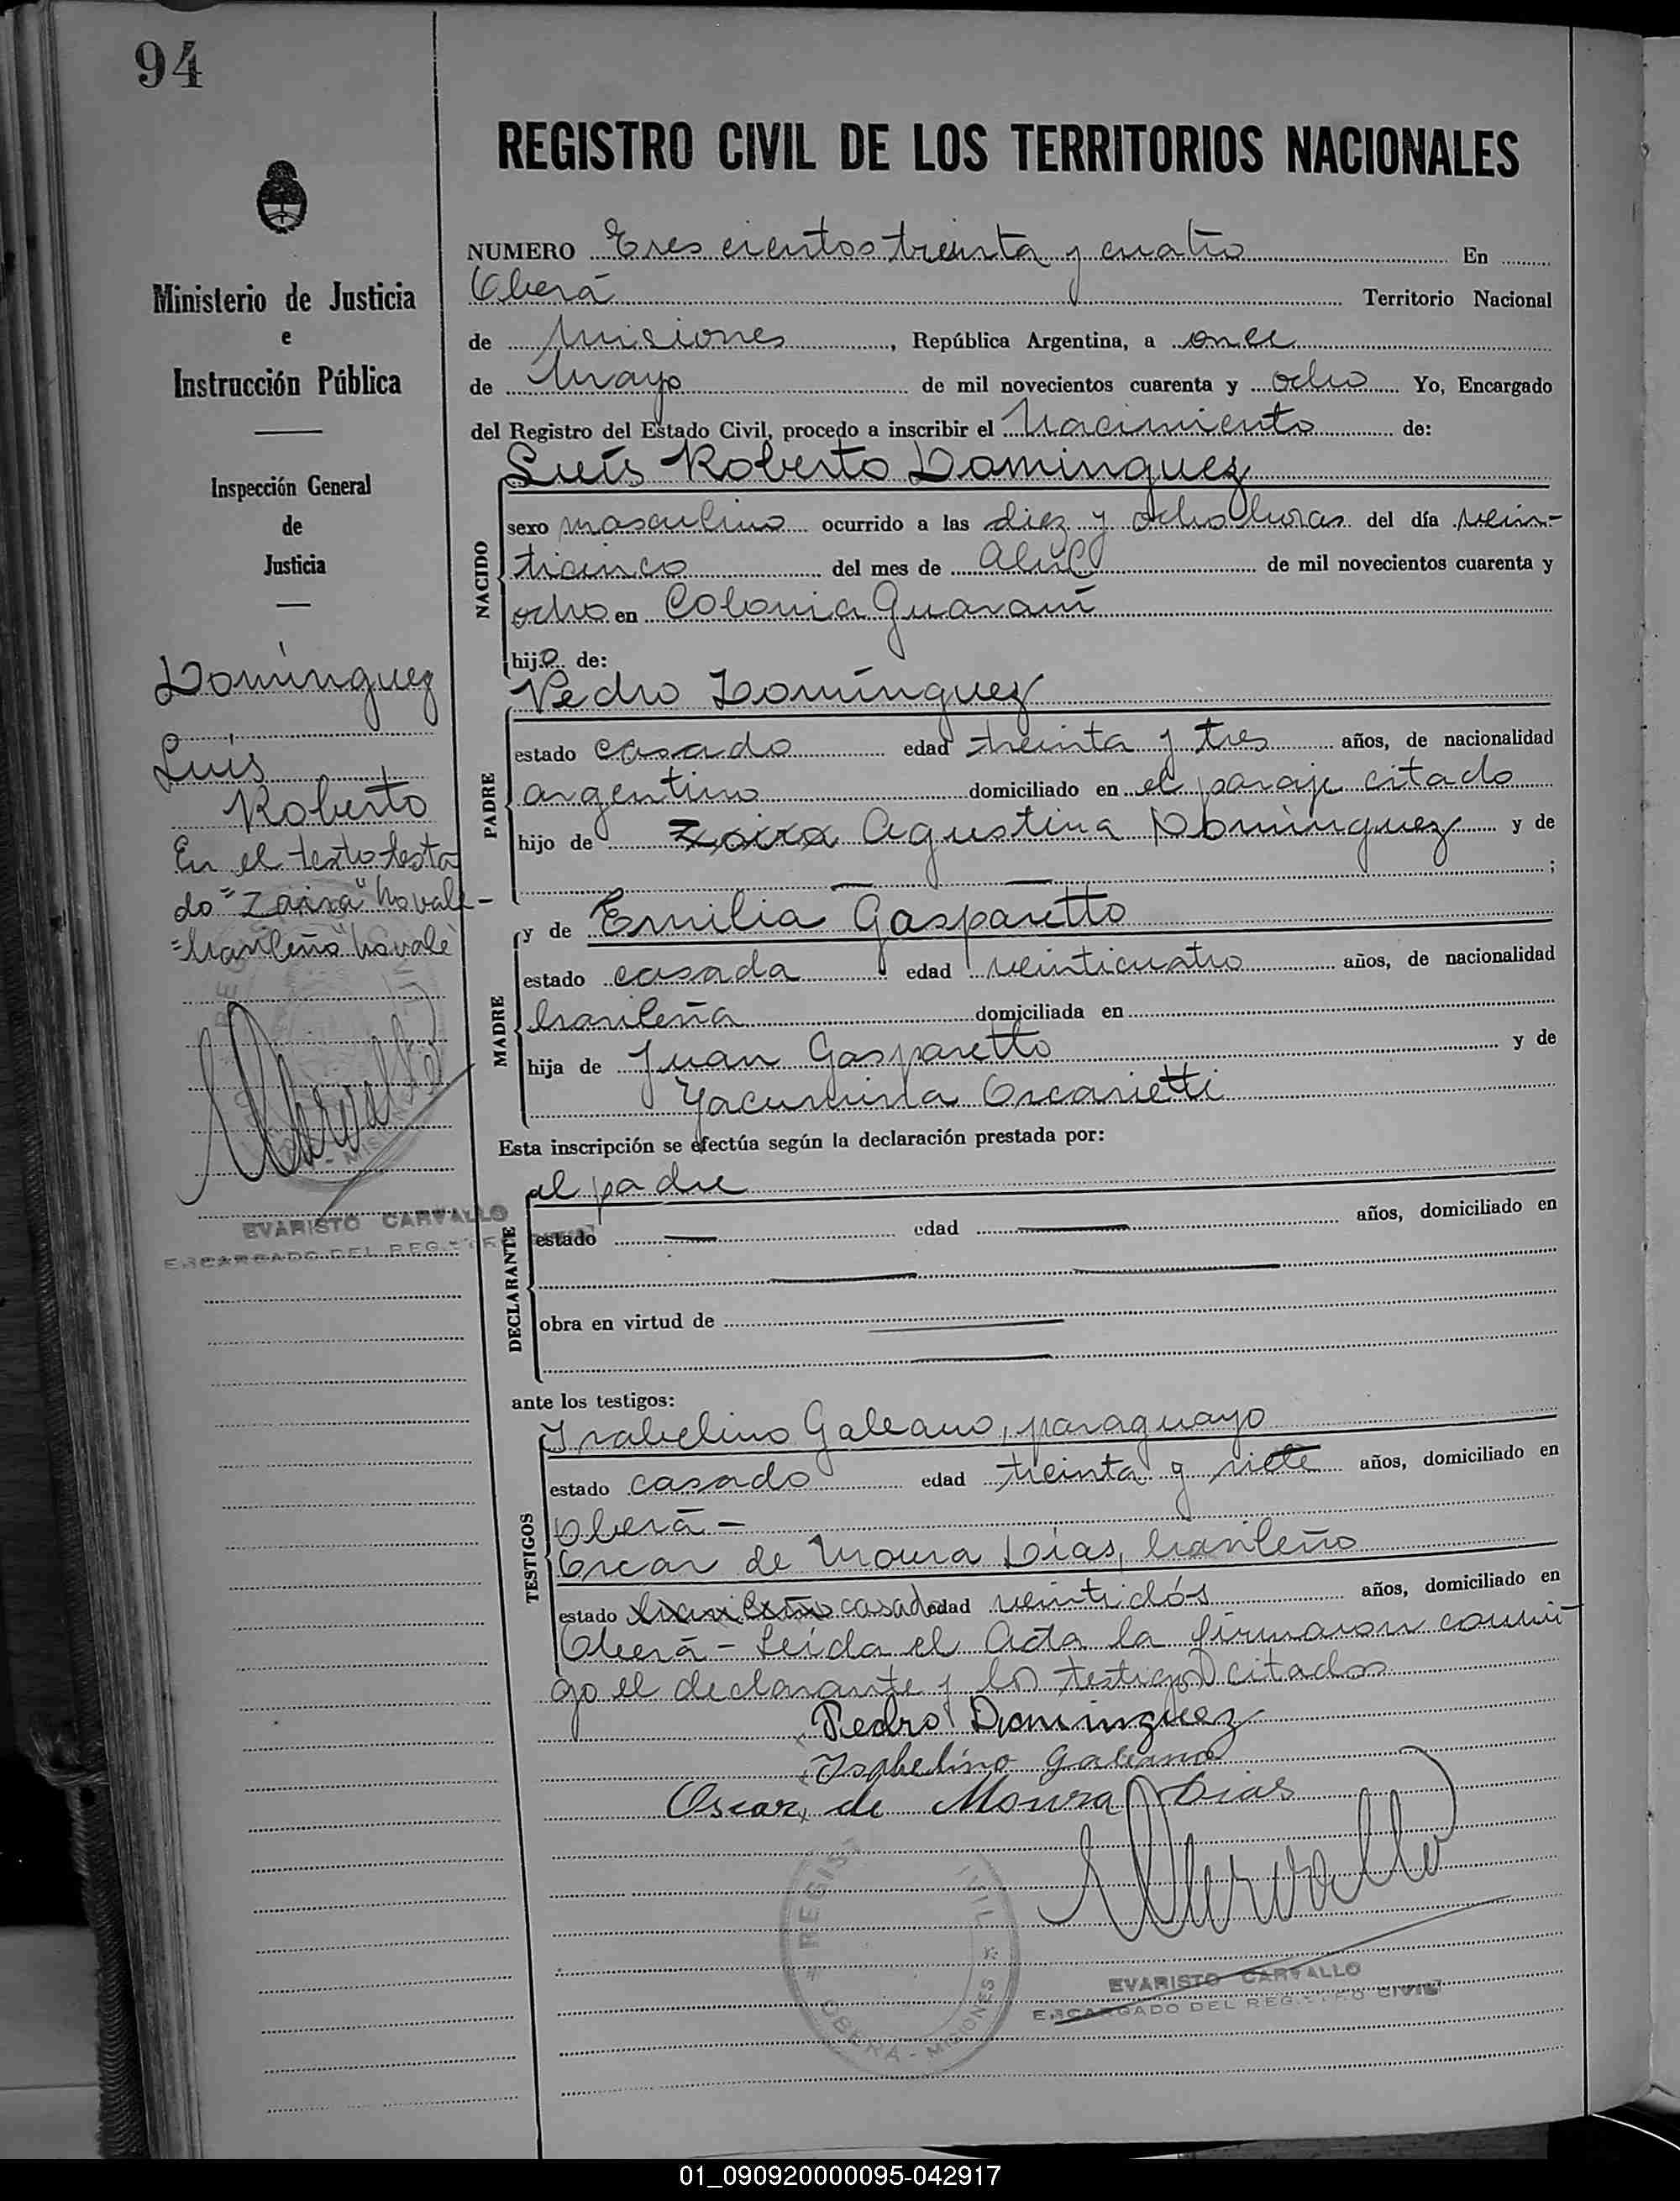 94
Ministerio de Justicia
e
Instrucción Pública
Inspección General
de
Justicia
Domínguez
Luis
Roberto
En el texto testa
do "Zaira" No vale-
"brasileño" No vale
EVARISTO CARVALLO
ENCARGADO DEL REGISTRO CIVIL
REGISTRO CIVIL DE LOS TERRITORIOS NACIONALES
NUMERO Trescientos treinta y cuatro En
Oberá Territorio Nacional
de Misiones, República Argentina, a once
de Mayo de mil novecientos cuarenta y ocho Yo, Encargado
del Registro del Estado Civil, procedo a inscribir el Nacimiento de:
Luís Roberto Dominguez
NACIDO
sexo masculino ocurrido a las diez y ocho horas del día vein-
ticinco del mes de Abril de mil novecientos cuarenta y
ocho en Colonia Guaraní
hijo de:
Pedro Domínguez
PADRE
estado casado edad treinta y tres años, de nacionalidad
argentino domiciliado en el paraje citado
hijo de Zaira Agustina Dominguez y de
;
MADRE
y de Emilia Gasparetto
estado casada edad veinticuatro años, de nacionalidad
brasileña domiciliada en
hija de Juan Gasparetto y de
Yacuminla Oscarietti
Esta inscripción se efectúa según la declaración prestada por:
el padre
DECLARANTE
estado edad años, domiciliado en
obra en virtud de
ante los testigos:
TESTIGOS
Isabelino Galeano, paraguayo
estado casado edad treinta y siete años, domiciliado en
Oberá-
Oscar de Moura Dias, brasileño
estado brasileño casado edad veintidós años, domiciliado en
Oberá - Leída el Acta la firmaron conmi-
go el declarante y los testigos citados
Pedro Dominguez
Isabelino Galeano
Oscar de Moura Dias
ECarvallo
REGIS IVIL
OBERA - MISIONES
EVARISTO CARVALLO
ENCARGADO DEL REGISTRO CIVIL
01_090920000095-042917